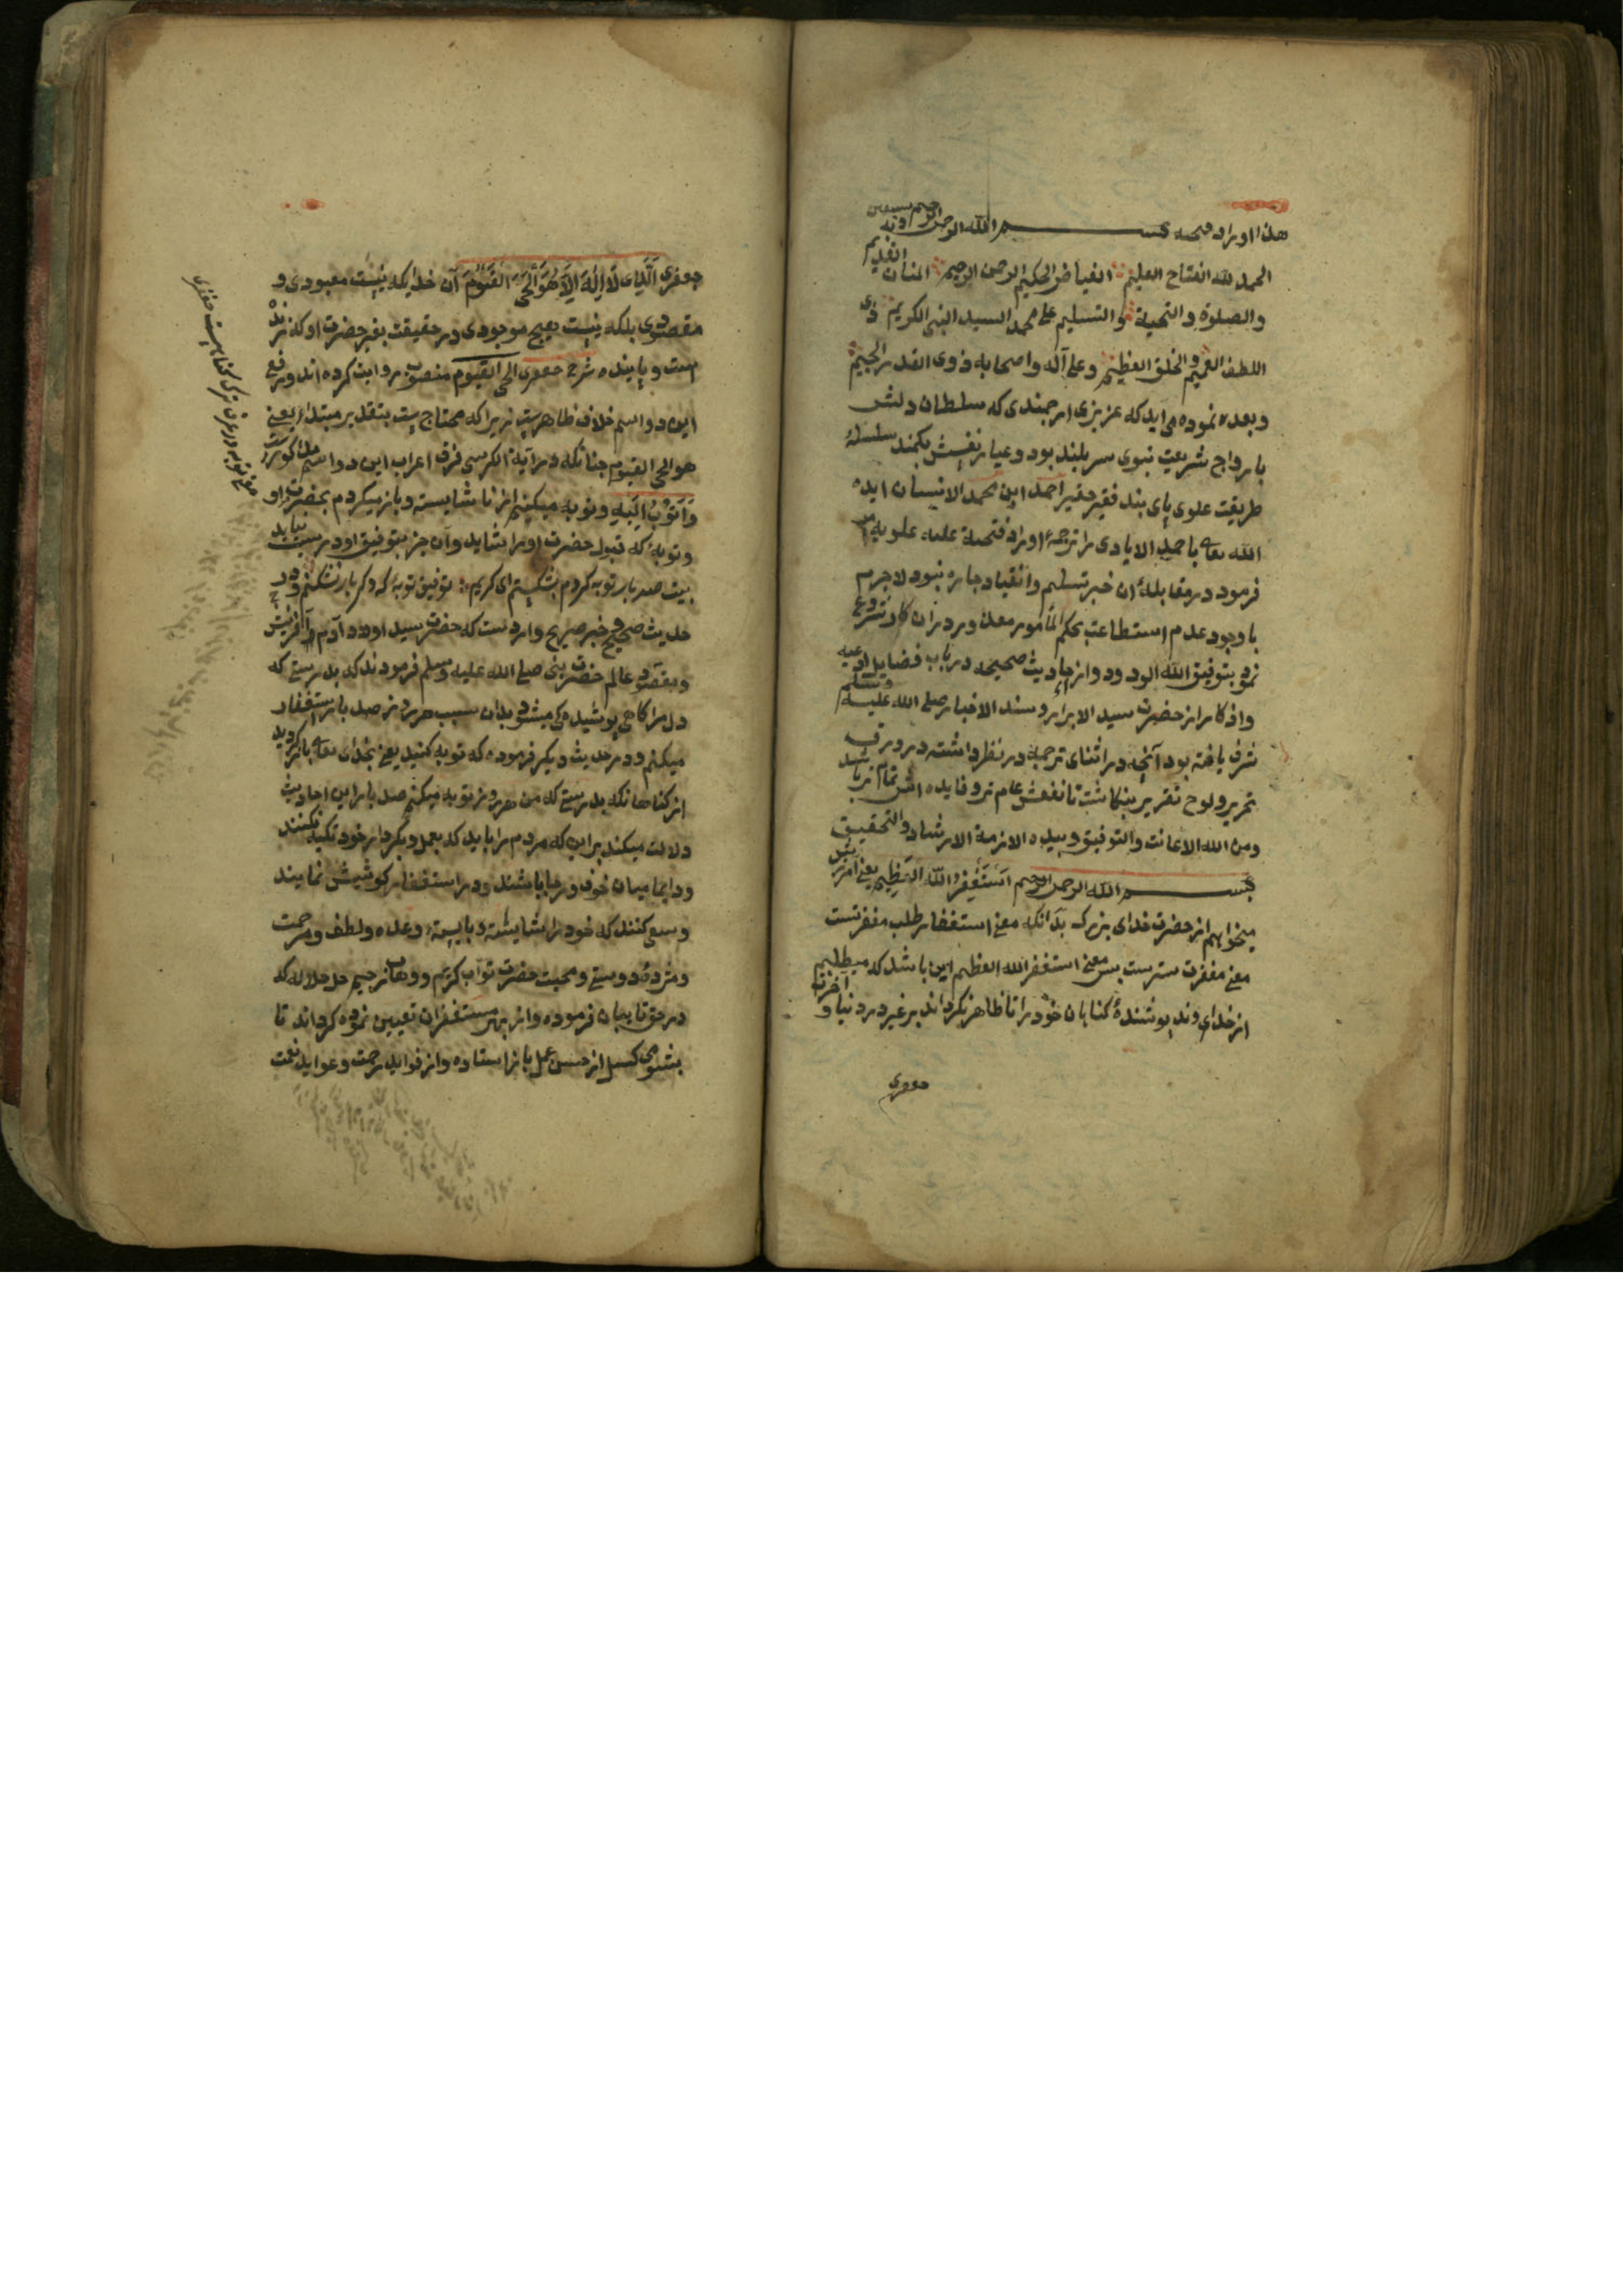 هذا اوراد فتحیه بسم الله الرحمن الرحیم
الحمد لله الفتاح العلیم الفیاض الحکیم الرحمن الرحیم المنان القدیم
والصلوة والتحیة والتسلیم علی محمد السید النبی الکریم ذی
اللطف العمیم والخلق العظیم وعلی آله واصحابه ذوی القدر الجسیم
وبعده نموده می آید که عزیزی ارجمندی که سلطان دلش
با رواج شریعت نبوی سربلند بود وعیار نفسش بکمند سلسلهٔ
طریقت علوی پای بند فقیر حقیر احمد ابن محمد الانیسان ایده
الله تعالی باحمد الایادی را ترجمهٔ اوراد فتحیة علیه علویه
فرمود در مقابلهٔ آن خبر تسلیم وانقیاد چاره نبود لاجرم
باوجود عدم استطاعت بحکم المأمور معذور در آن کار شروع
نمود بتوفیق الله الودود واز احادیث صحیحه در باب فضایل ادعیه
واذکار از حضرت سید الابرار وسند الاخیار صلی الله علیه وسلم
شرف یافته بود آنچه در اثنای ترجمه در نظر داشت در ورق
تحریر ولوح تقریر بنکاشت تا نفعش عام تر وفایده اش تمام تر باشد
ومن الله الاعانت والتوفیق وبیده الازمة الارشاد والتحقیق
بسم الله الرحمن الرحیم استغفر الله العظیم یعنی آمرزش
میخواهم از حضرت خدای بزرک بدانکه معنی استغفار طلب مغفرتست
معنی مغفرت سترست پس معنی استغفر الله العظیم این باشد که میطلبم
از خداوند پوشندهٔ کناهان خود را تا ظاهر نکرداند بر غیر در دنیا و آخرت
جعفری
جعفری الذی لا اله الا هو الحی القیوم آن خدایکه نیست معبودی و
مقصودی بلکه نیست هیچ موجودی در حقیقت بغیر حضرت او که زنده
است وپاینده شرح جعفری الحی القیوم منصوب روایت کرده اند ورفع
این دو اسم خلاف ظاهرست زیرا که محتاج ست بتقدیر مبتدا یعنی
هو الحی القیوم چنانکه در آیة الکرسی فرق اعراب این دو اسم مذکور
واتوب الیه وتوبه میکنیم از ناشایسته وباز میکردم بحضرت او
وتوبهٔ که قبول حضرت او را شاید وآن جز بتوفیق او درست نیاید
بیت صد بار توبه کردم بشکستم ای کریم توفیق توبهٔ که دکر بار نشکنم ودر
حدیث صحیح وخبر صریح واردست که حضرت سید اولاد آدم وآفرینش
ومقصود عالم حضرت نبی صلی الله علیه وسلم فرمودند که بدرستی که
دل مرا کاهی پوشیده کی میشود بدان سبب هر روز صد بار استغفار
میکنم ودر حدیث دیکر فرموده که توبه کنید یعنی بخدای تعالی باز کردید
از کناهانکه بدرستی که من هر روز توبه میکنم صد بار این احادیث
دلالت میکند براین که مردم را باید که بعمل وکردار خود تکیه نکنند
ودایما میان خوف ورجا باشند ودر استغفار کوشیش نمایند
وسعی کنند که خود را شایسته وبایسته وعده ولطف ومرحمت
ومژدهٔ دوستی ومحبت حضرت تواب کریم ووهاب رحیم جل جلاله که
در حق تایبان فرموده واز بهر مستغفران تعیین نموده کرداند تا
بشومی کسل از حسن عمل باز استاده واز فواید رحمت وعواید نعمت
معنی توبه در عرف ترک کناهست جعفری